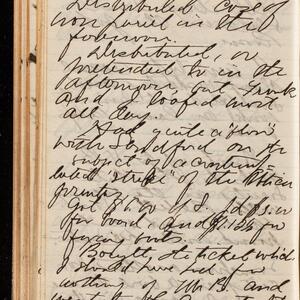 Distributed case of
nonpareil in the
forenoon.
Distributed, or
pretended to in the
afternoon, but Frank
and I loafed most
all day.
Had quite a "show"
with Sandford on the
subject of a contemp-
lated "strike" of the
printers
Got $5.00 of S.
for board, and
fixing boots.
Bought the ticket which
I should have had for
nothing of Mr. B. and
went to the